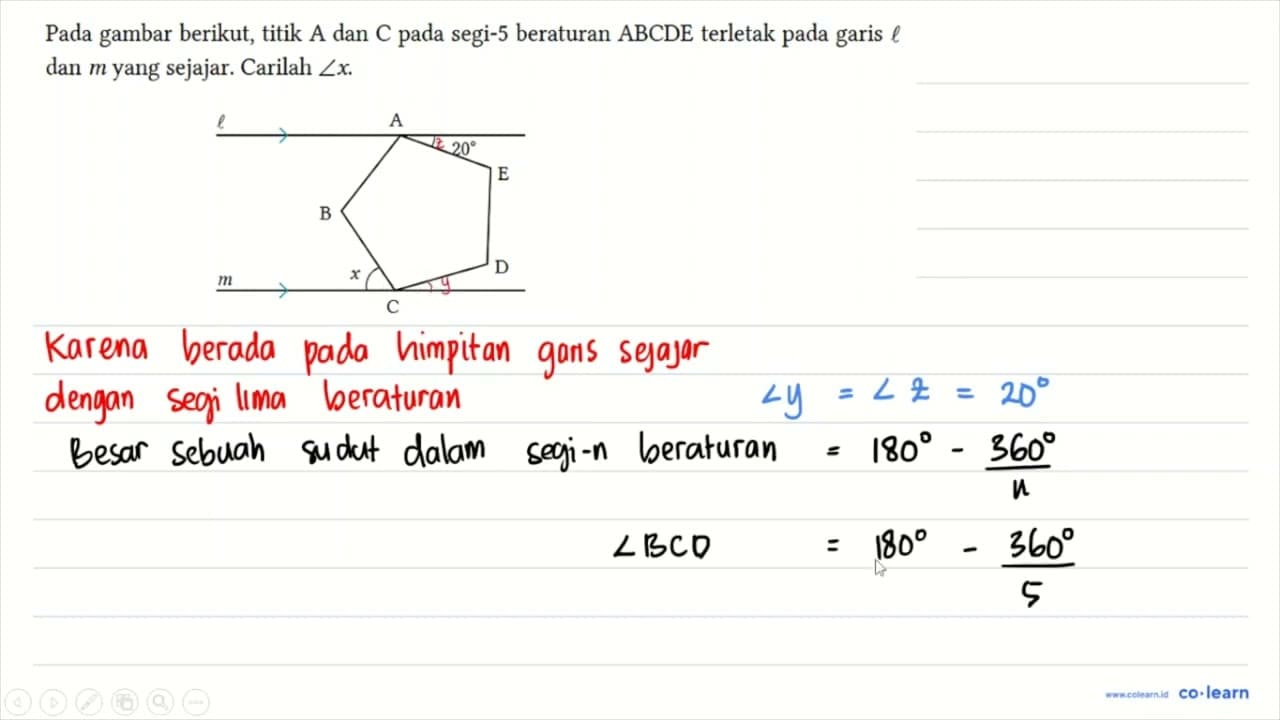 Pada gambar berikut, titik A dan C pada segi-5 beraturan ABCDE terletak pada garis ℓ
dan m yang sejajar. Carilah ∠x.
ℓ
A
z 20°
E
B
x
D
m
y
C
Karena berada pada himpitan garis sejajar
dengan segi lima beraturan
∠y = ∠z = 20°
Besar sebuah sudut dalam segi-n beraturan = 180° - 360°/n
∠BCD = 180° - 360°/5
www.colearn.id co·learn